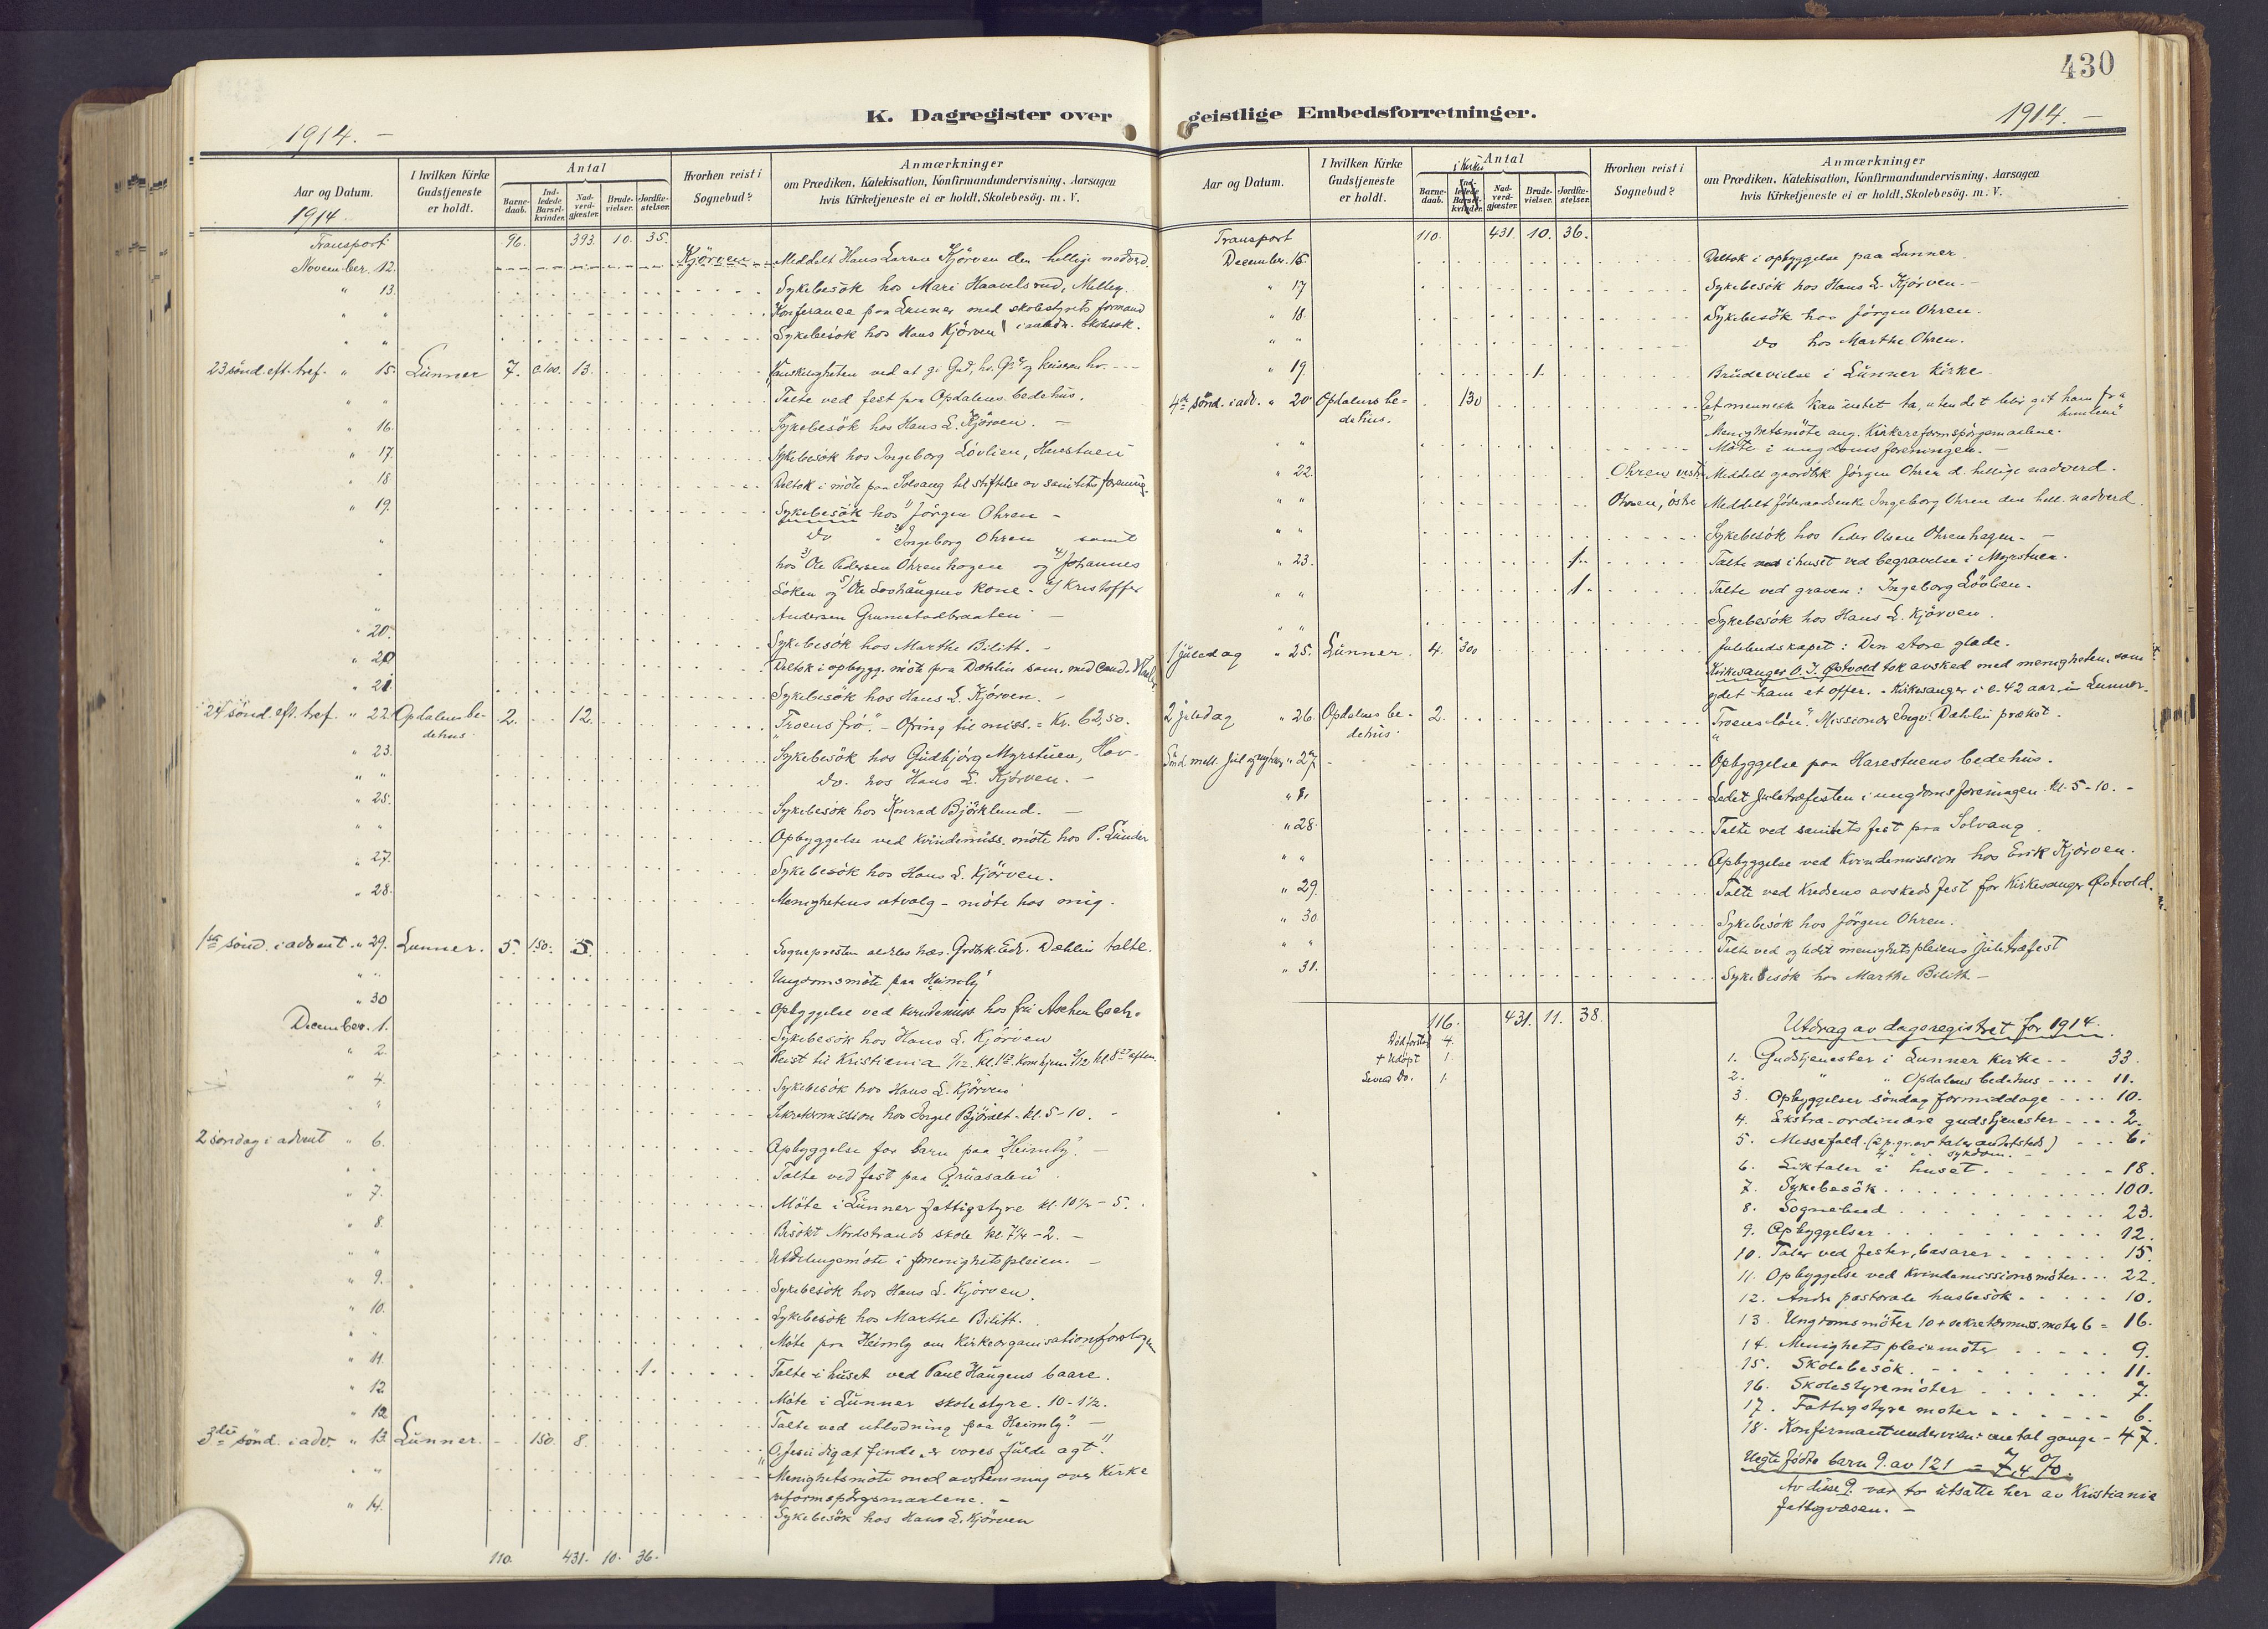 430
K. Dagregister over
geistlige Embedsforretninger.
1914. –
Aar og Datum.
I hvilken Kirke Gudstjeneste er holdt.
Antal
Barne-daab.
Ind-ledede Barsel-kvinder.
Nad-verd-gjæster.
Brude-vielser.
Jordfæ-stelser.
Hvorhen reist i Sognebud?
Anmærkninger
om Prædiken, Katekisation, Konfirmandundervisning, Aarsagen
hvis Kirketjeneste ei er holdt, Skolebesög. m. V.
1914
Transport 96. 393. 10. 35.
November. 12. Kjörven Meddelt Hans Larsen Kjörven den hellige nadverd.
" 13. Sykebesök hos Mari Haavelsrud,
" " Konferance paa Lunner med skolestyrets formand
" " Sykebesök hos Hans Kjörven
23 sönd. eft. tref. " 15. Lunner 7. c.100. 13. Vanskeligheten ved at gi Gud, hv. G's er og keiseren hv. ---
" " Talte ved fest paa Opdalens bedehus.
" 16. Sykebesök hos Hans L. Kjörven. –
" 17. Sykebesök hos Ingeborg Lövlien, Harestuen
" 18 Deltok i möte paa Solvang til stiftelse av sanitetsforening.
" 19. Sykebesök hos 1) Jörgen Ohren –
" Do " 2) Ingeborg Ohren samt
" hos 3) Ole Pedersen Ohrenhagen og 4) Johannes
Söken og 5) Ole Lovhaugens kone – 6) Kristoffer
" Andersen Grumstadbraaten –
" 20. Sykebesök hos Marthe Bilitt. –
" 20 Deltok i opbygg. möte paa Dæhlin sam. med Cand.
" 21. Sykebesök hos Hans L. Kjörven. –
24 sönd. eft. tref. " 22. Opdalens bedehus 2. 12. "Troens frö". – Ofring til miss. = Kr. 62,50.
" 23. Sykebesök hos Gudbjörg Myrstuen, Hov –
" " Do. hos Hans L. Kjörven. –
" 25. Sykebesök hos Konrad Björklund. –
" " Opbyggelse ved Kvindemiss. möte hos P. Lunder
" 27. Sykebesök hos Hans L. Kjörven.
" 28. Menighetens utvalg – möte hos mig.
1ste sönd. i advent " 29. Lunner. 5. 150. 5. Sognepresten Grdbr. Edv. Dæhlin talte.
" " Ungdomsmöte paa Heimly
" 30 Opbyggelse ved kvindemiss hos fru Aschenbach.
December. 1. Sykebesök hos Hans L. Kjörven
" 2. Reist til Kristiania 1/12. kl. Kom hjem 2/12 kl 8 aften.
" 4. Sykebesök hos Hans L. Kjörven
" " Sekretermission hos Ingel Björalt. Kl. 5–10. –
2 söndag i advent " 6. Opbyggelse for barn paa "Heimly". –
" " Talte ved fest paa Gruasalen
" 7. Möte i Lunner fattigstyre kl. 10½ – 5.
" 8. Besökt Nordstrands skole kl. 7¼ – 2. –
" " Utdelingsmöte i menighetspleien. –
" 9. Sykebesök hos Hans L. Kjörven.
" 10. Sykebesök hos Marthe Bilitt.
" " Möte paa Heimly om Kirkeorganisationsforslagene
" 11. 1. Talte i huset ved Paul Haugens baare.
" 12 Möte i Lunner skolestyre. 10–1½.
" 12 Talte ved utlodning paa "Heimly". –
3die sönd. i adv. " 13. Lunner. 150. 8. "O Jesu dig at finde, er vores fulde agt."
" " Menighetsmöte med avstemning over Kirke
reformspörgsmaalene. –
" 14. Sykebesök hos Hans L. Kjörven
110. 431. 10. 36.
1914. –
Aar og Datum.
I hvilken Kirke Gudstjeneste er holdt.
Antal
i Kirke
Barne-daab.
Ind-ledede Barsel-kvinder.
Nad-verd-gjæster.
Brude-vielser.
Jordfæ-stelser.
Hvorhen reist i Sognebud?
Anmærkninger
om Prædiken, Katekisation, Konfirmandundervisning, Aarsagen
hvis Kirketjeneste ei er holdt, Skolebesög. m. V.
Transport 110. 431. 10. 36.
December. 15. Deltok i opbyggelse paa Lunner
" 17 Sykebesök hos Hans L. Kjörven. –
" 18. Sykebesök hos Jörgen Ohren.
" " Do hos Marthe Ohren.
" 19. 1. Brudevielse i Lunner Kirke
4de sönd. i adv. " 20 Opdalens bedehus. 130 "Et menneske kan intet ta, uten det blir git ham fra
himlen"
Menighetsmöte ang. Kirkereformspörgsmaalene.
" " Möte i ungdomsforeningen. –
" 22. Ohren vestre Meddelt gaardbr. Jörgen Ohren d. hellige nadverd.
" " Ohren, östre Meddelt föderaadsenke Ingeborg Ohren den hell. nadverd.
" " Sykebesök hos Peder Olsen Ohrenhagen. –
" 23. 1. Talte i huset ved begravelse i Myrstuen.
" " 1. Talte ved graven: Ingeborg Lövlien.
" " Sykebesök hos Hans L. Kjörven.
1 juledag " 25. Lunner 4. 300 Julebudskapet: Den store glæde.
Kirkesanger O. J. Östvold tok avsked med menigheten, som
ydet ham et offer. – Kirkesanger i c. 42 aar i Lunner.
2 juledag " 26. Opdalens bedehus. 2. "Troens lön". Missionær Ingv. Dæhlin prækte.
Sönd. mell. jul og nytaar " 27 Opbyggelse paa Harestuens bedehus.
" " Ledet juletræfesten i ungdomsforeningen. Kl. 5–10. –
" 28. Talte ved sanitets fest paa Solvang
" " Opbyggelse ved Kvindemission hos Erik Kjörven.
" 29. Talte ved Kredsens avskedsfest for Kirkesanger Östvold.
" 30. Sykebesök hos Jörgen Ohren.
" " Talte ved og ledet menighetspleiens juletræfest
" 31. Sykebesök hos Marthe Bilitt –
116. 431. 11. 38.
Dödfödte 4.
+ Udöpt 1.
Do. 1.
Utdrag av dagsregistret for 1914.
1. Gudstjenester i Lunner kirke – – 33.
2. " " Opdalens bedehus – – – 11.
3. Opbyggelser söndag formiddage – – – – 10.
4. Ekstra-ordinære gudstjenester – – – – 2.
5. Messefald. (2 p. gr. av taler andetsteds) – – – 6.
4 " " " sykdom. –
6. Liktaler i huset. – – – – 18.
7. Sykebesök. . . . . 100.
8. Sognebud . . . . 23.
9. Opbyggelser . . . . 12.
10. Taler ved fester, basarer – . . . 15
11. Opbyggelse ved Kvindemissionsmöter . . . 22.
12. Andre pastorale husbesök . . . . 10.
13. Ungdomsmöter 10 + sekretermiss. möter 6 = 16.
14. Menighetspleiemöter . . . . 9.
15. Skolebesök. – . . . . 11.
16. Skolestyremöter . . . . 7.
17. Fattigstyremöter . . . . 6.
18. Konfirmantundervisn: antal gange – 47.
Uegte födte barn 9. av 121 = 7,4 %.
Av disse 9. var to utsatte her av Kristiania
fattigvæsen. –